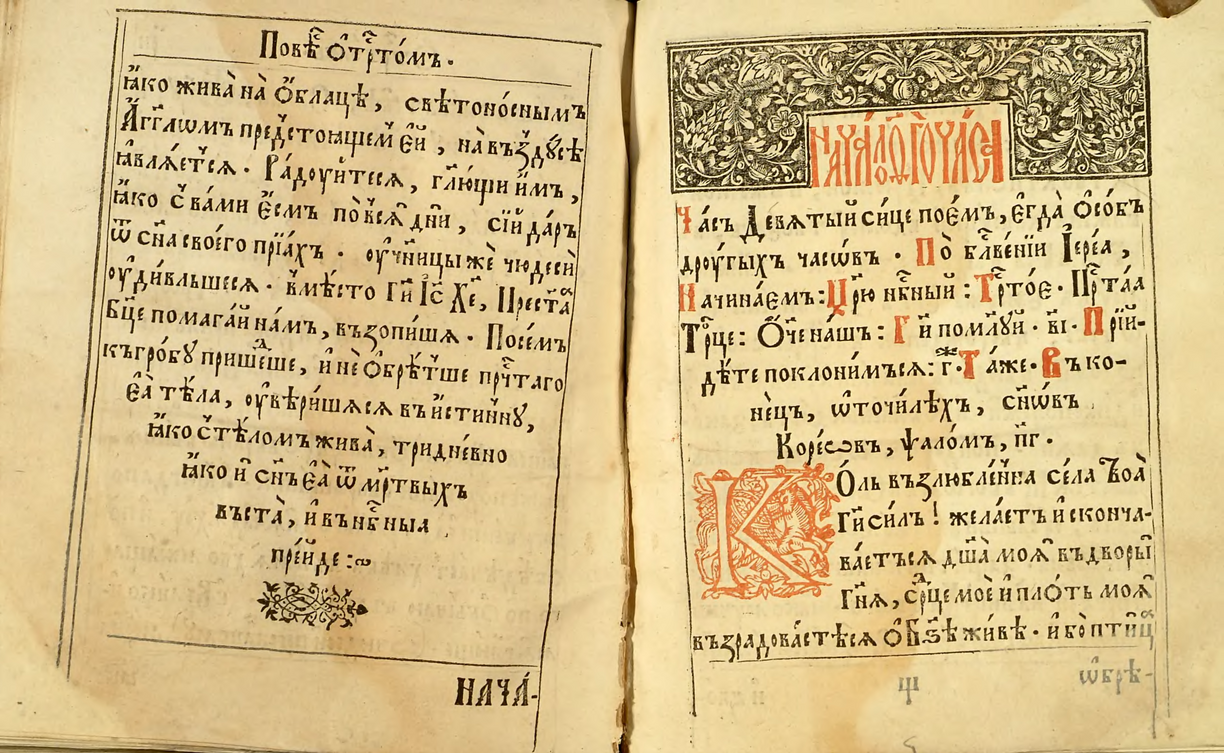 Повѣⷭ҇ ѻ҆ трⷪ҇то́мъ.
ꙗ҆́ко жива̀ на ѻ҆́блацѣ, свѣтоно́снымъ
А҆́гг҃лѡмъ пред̾стоѧщем̾ е҆́й, на въздꙋ́сѣ
ꙗ҆влѧ́етсѧ. Ра́доуйтесѧ, гл҃ющи и҆̀мъ,
ꙗ҆́ко с̾ ва́ми е҆́смъ по всѧ̑ дн҃и, сїй да́ръ
ѿ сн҃а своего прїѧ́хъ. оу҆ч҃ницы же чюдеси̑
оу҆ди́вльшесѧ. в̾мѣ́сто Гⷭ҇и І҆с Хе҃, Прест҃аѧ
Бц҃е помага́й на́мъ, възопи́шѧ. Посе́мъ
къ гро́бꙋ прише́дше, и҆ не ѻ҆брѣ́тше прⷱ҇таго
еѧ̀ тѣ́ла, оу҆вѣ́ришѧсѧ въ и҆́стиннꙋ,
ꙗ҆́ко с̾ тѣ́ломъ жива̀, тридне́вно
ꙗ҆́ко и҆ сн҃ъ еѧ̀ ѿ ме́ртвыхъ
въста̀, и҆ въ нб҃ныѧ
пре́йде :
НАЧА́-
НАЧА́ЛО Ѳ҃ГО ЧАСА̀
Ча́съ Девѧ́тый си́це пое́мъ, є҆гда̀ ѻ҆со́бъ
дроугы́хъ часѡ́въ. По бл҃ве́нїи І҆ере́а,
Начина́емъ: Цр҃ю нбⷭ҇ный: Трⷭ҇то́е. Прⷭ҇таа
Трⷪ҇це: Ѻ҆́ч҃е на́шъ: Гⷭ҇и помл҃уй. в҃і. Прїй-
дѣ́те поклони́мъсѧ: г҃.ж Та́же. Въ ко-
не́цъ, ѡ҆ точи́лѣхъ, сн҃ѡ́въ
Коре́ѡвъ, ѱало́мъ, п҃г.
Ко́ль възлю́бле́нна се́ла Твоа̀
Гⷭ҇и си́лъ! жела́етъ и҆ сконча-
ва́етъсѧ дш҃а̀ моѧ̀ въ дворы̀
Гн҃ѧ, срⷣце моѐ и҆ пло́ть моѧ̀
възрадова́стѣсѧ ѻ҆ Бз҃ѣ жи́вѣ. и҆бо пти́ца
ѱ
ѡ҆брѣ-